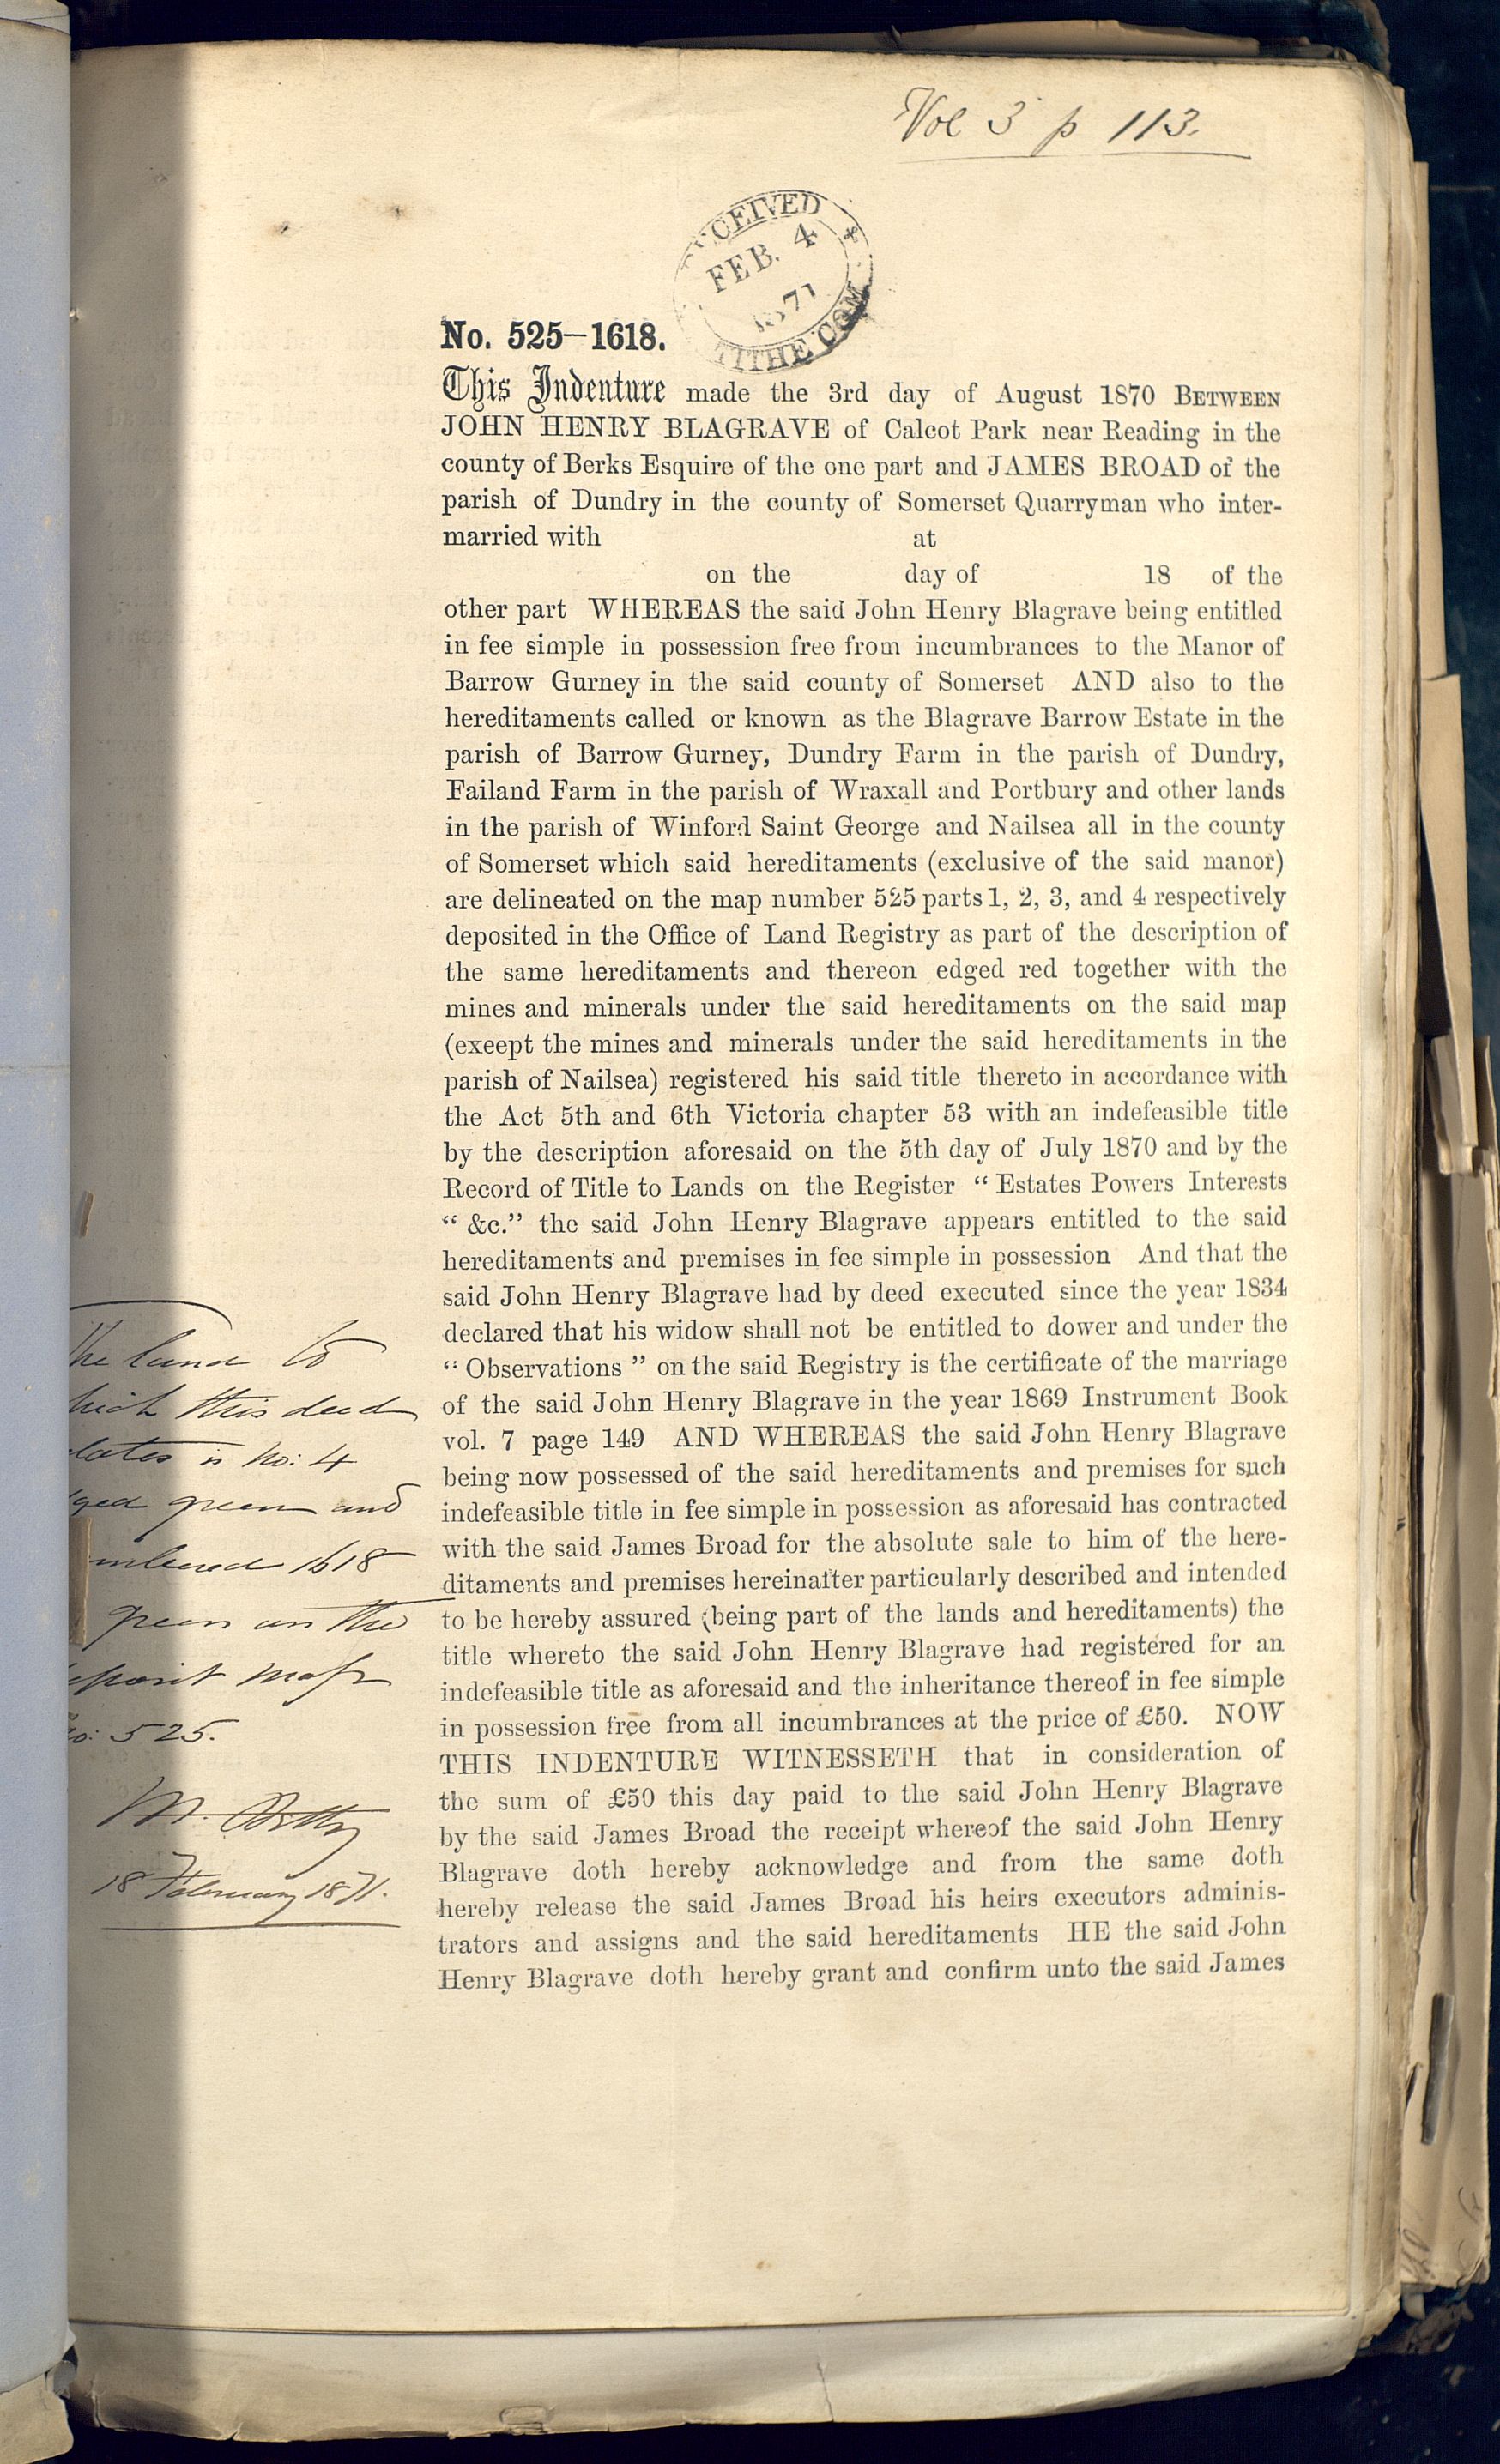 Vol 3 p 113.
CEIVED
FEB. 4
1871
TITHE COM
No. 525-1618.
This Indenture made the 3rd day of August 1870 BETWEEN
JOHN HENRY BLAGRAVE of Calcot Park near Reading in the
county of Berks Esquire of the one part and JAMES BROAD of the
parish of Dundry in the county of Somerset Quarryman who inter-
married with at
on the day of 18 of the
other part WHEREAS the said John Henry Blagrave being entitled
in fee simple in possession free from incumbrances to the Manor of
Barrow Gurney in the said county of Somerset AND also to the
hereditaments called or known as the Blagrave Barrow Estate in the
parish of Barrow Gurney, Dundry Farm in the parish of Dundry,
Failand Farm in the parish of Wraxall and Portbury and other lands
in the parish of Winford Saint George and Nailsea all in the county
of Somerset which said hereditaments (exclusive of the said manor)
are delineated on the map number 525 parts 1, 2, 3, and 4 respectively
deposited in the Office of Land Registry as part of the description of
the same hereditaments and thereon edged red together with the
mines and minerals under the said hereditaments on the said map
(exeept the mines and minerals under the said hereditaments in the
parish of Nailsea) registered his said title thereto in accordance with
the Act 5th and 6th Victoria chapter 53 with an indefeasible title
by the description aforesaid on the 5th day of July 1870 and by the
Record of Title to Lands on the Register " Estates Powers Interests
" &c." the said John Henry Blagrave appears entitled to the said
hereditaments and premises in fee simple in possession And that the
said John Henry Blagrave had by deed executed since the year 1834
declared that his widow shall not be entitled to dower and under the
" Observations " on the said Registry is the certificate of the marriage
of the said John Henry Blagrave in the year 1869 Instrument Book
vol. 7 page 149 AND WHEREAS the said John Henry Blagrave
being now possessed of the said hereditaments and premises for such
indefeasible title in fee simple in possession as aforesaid has contracted
with the said James Broad for the absolute sale to him of the here-
ditaments and premises hereinafter particularly described and intended
to be hereby assured (being part of the lands and hereditaments) the
title whereto the said John Henry Blagrave had registered for an
indefeasible title as aforesaid and the inheritance thereof in fee simple
in possession free from all incumbrances at the price of £50. NOW
THIS INDENTURE WITNESSETH that in consideration of
the sum of £50 this day paid to the said John Henry Blagrave
by the said James Broad the receipt whereof the said John Henry
Blagrave doth hereby acknowledge and from the same doth
hereby release the said James Broad his heirs executors adminis-
trators and assigns and the said hereditaments HE the said John
Henry Blagrave doth hereby grant and confirm unto the said James
The land to
hich this deed
lates is No: 4
ged green and
umbered 1618
green on the
eposit map
No: 525.
18 February 1871.